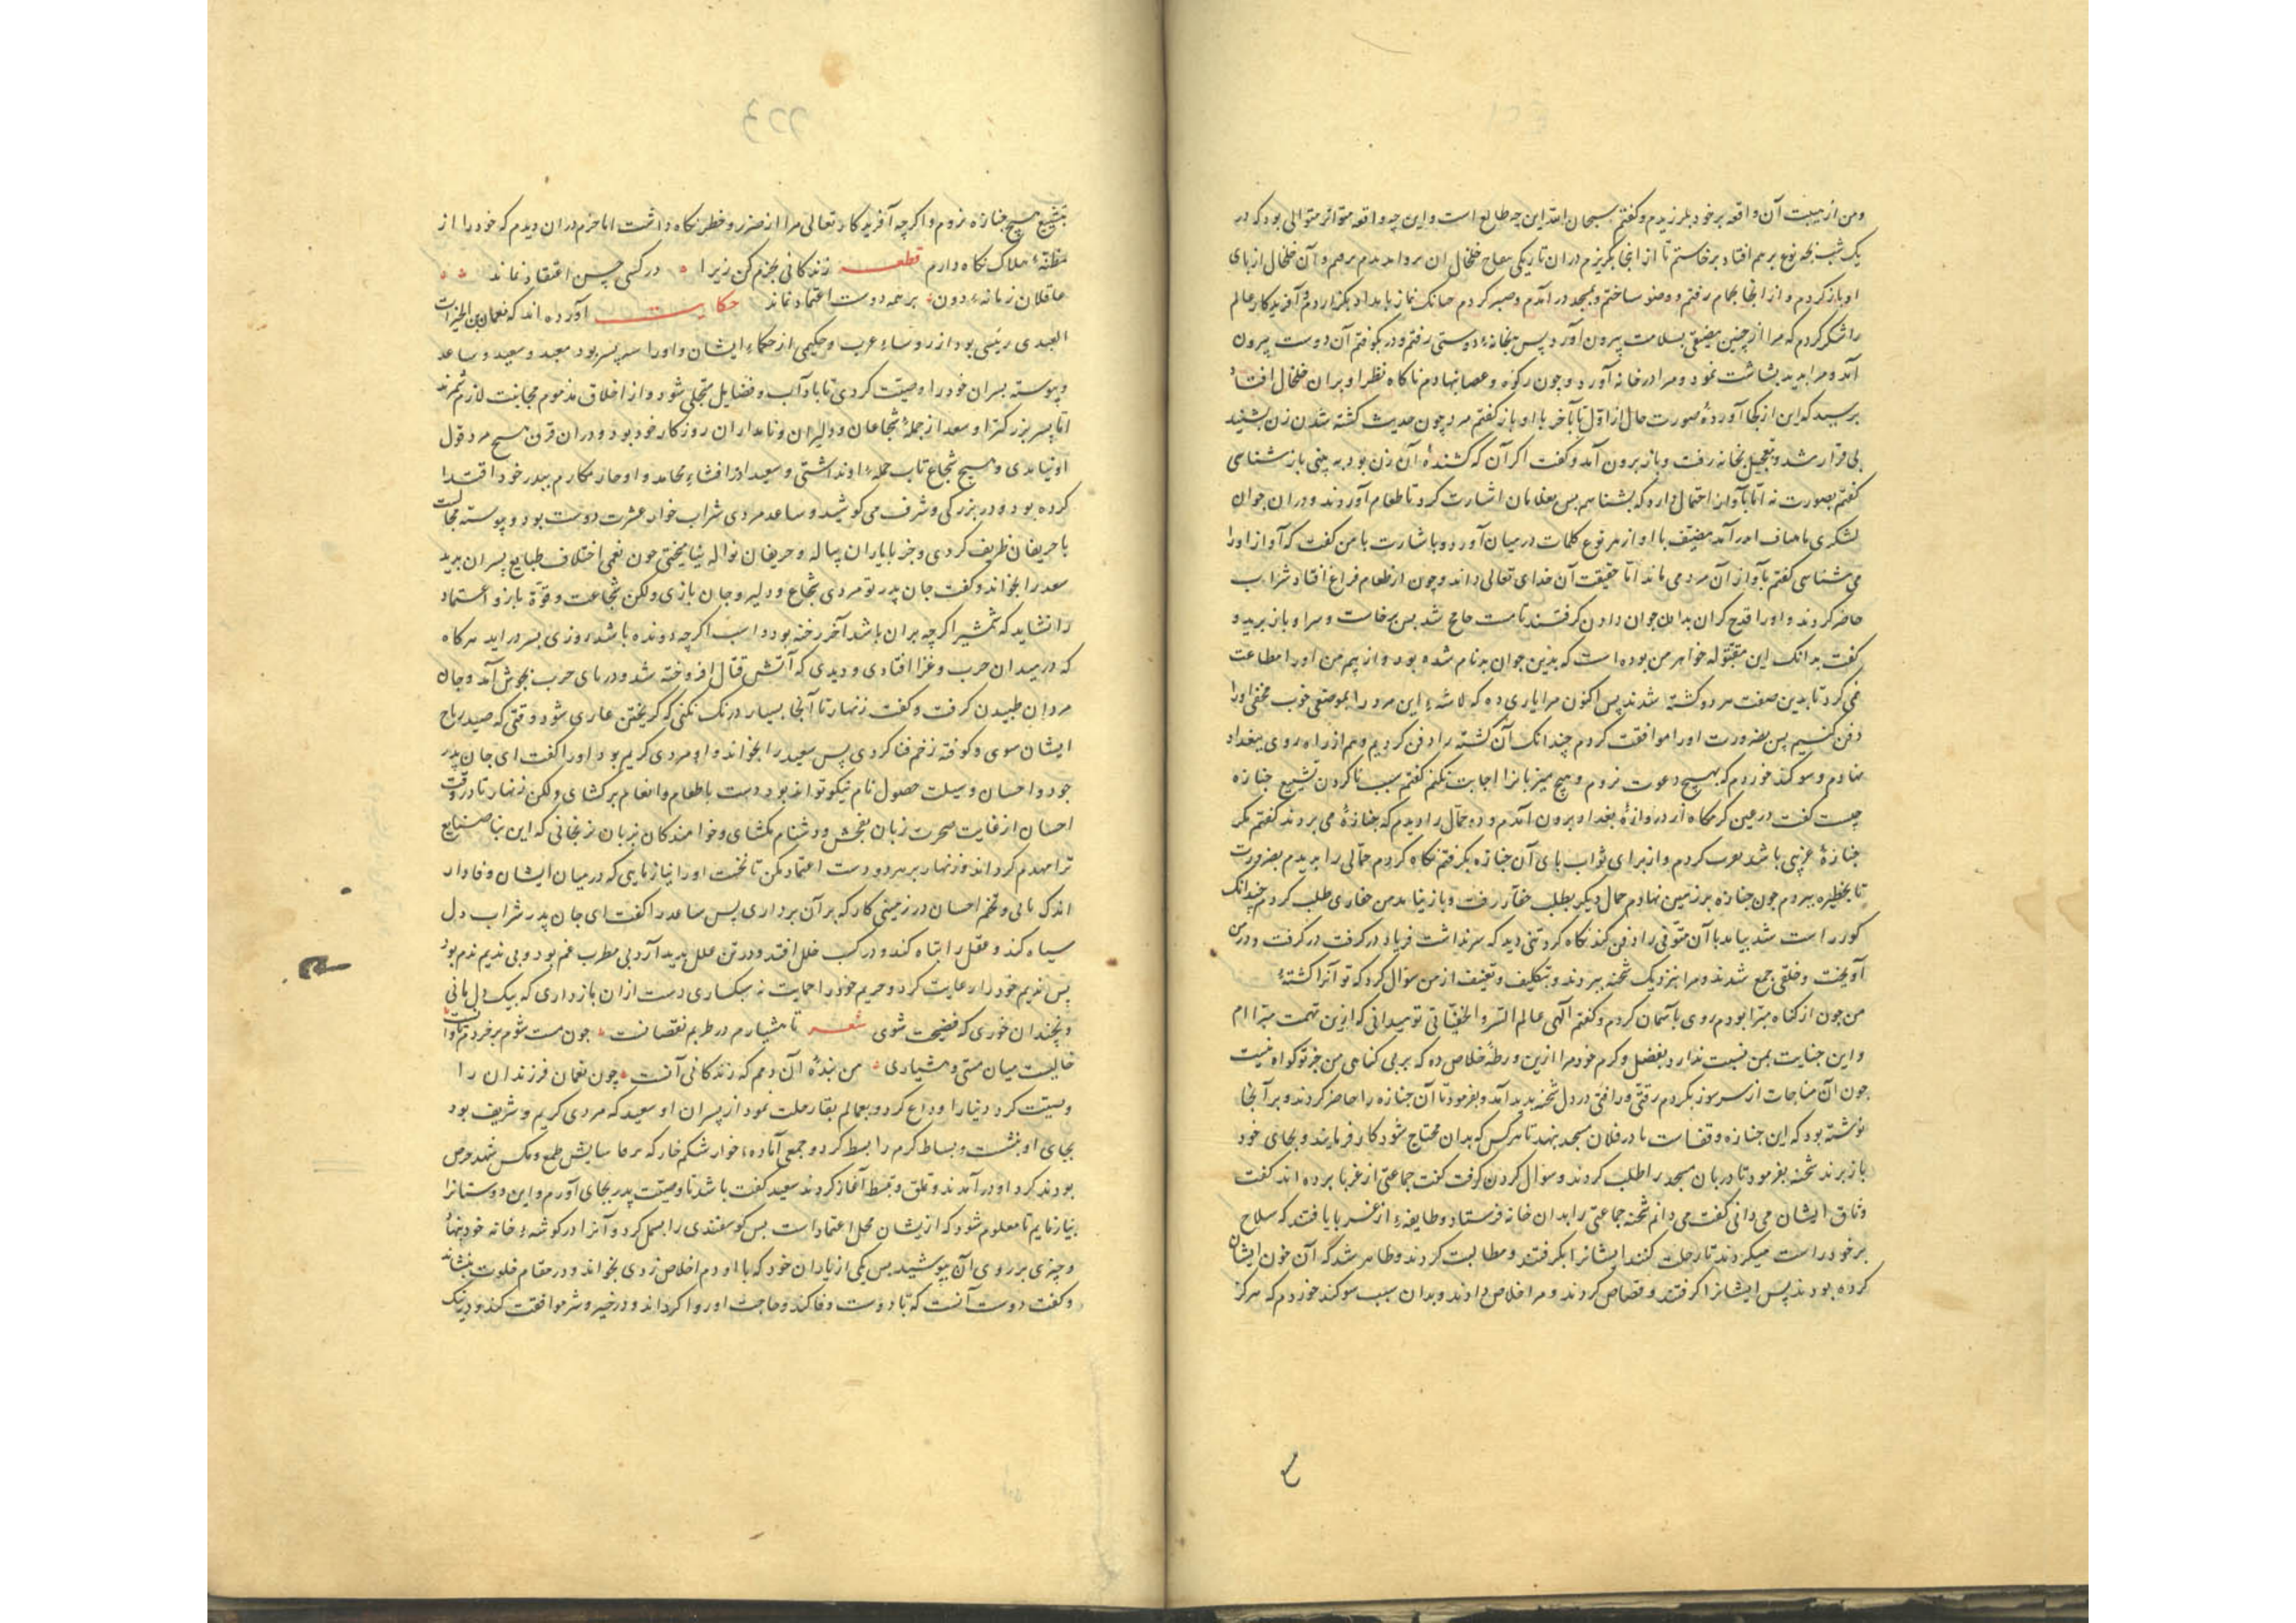 ومن از هیبت آن واقعه بر خود بلرزیدم و گفتم سبحان الله این چه طالع است و این چه واقعه متواتر متوالی بود که در
یک شب نوع بر هم افتاد برخاستم تا از آنجا بگریزم در آن تاریکی خلخال آن بر دم و آن خلخال از پای
او باز کردم و از آنجا بحمام رفتم و وضو ساختم و بمسجد در آمدم و صبر کردم چنانک نماز بامداد بگزاردم و آفریدکار عالم
را شکر کردم که مرا از چنین مضیقی بسلامت بیرون آورد پس بخانهٔ دوستی رفتم و در بکوفتم آن دوست بیرون
آمد و مرا بدید بشاشت نمود و مرا در خانه آورد و چون رکوه و عصا بنهادم ناکاه نظر او بر آن خلخال افتاد
پرسید که این از کجا آوردهٔ صورت حال از اول تا آخر با او باز گفتم مرد چون حدیث کشته شدن زن بشنید
بی قرار شد و بتعجیل بخانه رفت و باز برون آمد و گفت اگر آن که کشندهٔ آن زن بود به بینی باز شناسی
گفتم بصورت نه اما بآواز احتمال دارد که بشناسم پس بغلامان اشارت کرد تا طعام آوردند و در آن جوان
لشکری با مضیف با او از هر نوع کلمات در میان آورد و باشارت با من گفت که آواز او را
می شناسی گفتم بآواز آن مرد می ماند اما حقیقت آن خدای تعالی داند و چون از طعام فراغ افتاد شراب
حاضر کردند و او را قدح گران بدان جوان دادن گرفتند تا مست شد پس برخاست و سر او باز برید و
گفت بدانک این مقتوله خواهر من بوده است که بدین جوان بدنام شده بود و از بیم من او را مطاعت
نمی کرد تا بدین صفت هر دو کشته شدند پس اکنون مرا یاری ده که لاشهٔ این مرد را بموضعی خوب مخفی او را
دفن کنیم پس بضرورت او را موافقت کردم چندانک آن کشته را دفن کردیم و هم از راه روی ببغداد
نهادم و سوکند خوردم که بهیچ دعوت نروم و هیچ میزبانرا اجابت نکنم گفتم سبب نا کردن تشییع جنازه
چیست گفت در عین گرمگاه از دروازهٔ بغداد برون آمدم و دو حمال را دیدم که جنازهٔ می بردند گفتم مگر
جنازهٔ غریبی باشد کردم و از برای ثواب پای آن جنازه بگرفتم نگاه کردم حمالی را بریدم بضرورت
تا بحظیره ببردم چون جنازه بر زمین نهادم حمال دیگر بطلب حفار رفت و باز نیامد من حفاری طلب کردم چندانک
گور راست شد بیامد تا آن متوفی را دفن کند نگاه کرد تنی دید که سر نداشت فریاد در گرفت و در من
آویخت و خلقی جمع شدند و مرا نزدیک شحنه بردند و بتکلیف و تعنیف از من سؤال کرد که تو آنرا کشتهٔ
من چون از گناه مبرا بودم روی بآسمان کردم و گفتم الهی عالم السر و الخفیاتی تو میدانی که ازین تهمت مبرا ام
و این جنایت بمن نسبت ندارد بفضل و کرم خود مرا ازین ورطه خلاص ده که بر بی گناهی من جز تو گواه نیست
چون آن مناجات از سر سوز بکردم رقتی و رافتی در دل شحنه پدید آمد و بفرمود تا آن جنازه را حاضر کردند و بر آنجا
نوشته بود که این جنازه وقف است تا در فلان مسجد بنهد تا هر کس که بدان محتاج شود کار فرمایند و بجای خود
باز برند شحنه بفرمود تا دربان مسجد را طلب کردند و سوال کردن گرفت گفت جماعتی از غربا برده اند گفت
وثاق ایشان می دانی گفت می دانم شحنه جماعتی را بدان خانه فرستاد و طایفهٔ از غربا یافتند که سلاح
بر خود راست میکردند تا رحلت کنند ایشانرا بگرفتند و مطالبت کردند و ظاهر شد که آن خون ایشان
کرده بودند پس ایشانرا گرفتند و قصاص کردند و مرا خلاص دادند و بدان سبب سوکند خوردم که هرگز
بتشییع هیچ جنازه نروم و اگرچه آفریدکار تعالی مرا از ضرر و خطر نگاه داشت اما حزم در آن دیدم که خود را از
مظنهٔ هلاک نگاه دارم قطعه زندگانی بحزم کن زیرا در کسی حسن اعتقاد نماند
عاقلان زمانهٔ دون بر همه دوست اعتماد نماند حکایت آورده اند که نعمان بن
العبدی رئیسی بود از روساء عرب و حکیمی از حکماء ایشان و او را سه پسر بود سعد و سعید و ساعد
و پیوسته پسران خود را وصیت کردی تا بآداب و فضایل متحلی شود و از اخلاق مذموم مجانبت لازم شمرند
اما پسر بزرگتر او سعد از جملهٔ شجاعان و دلیران و نامداران روزگار خود بود و در آن قرن هیچ مرد قول
او نیامدی و هیچ شجاع تاب حملهٔ او نداشتی و سعید در افشاء محامد و احراز مکارم بپدر خود اقتدا
کرده بود و در بزرگی و شرف می کوشید و ساعد مردی شراب خوار عشرت دوست بود و پیوسته مجالست
با حریفان ظریف کردی و جز با یاران پیاله و حریفان نواله نیامیختی چون نعمان اختلاف طبایع پسران بدید
سعد را بخواند و گفت جان پدر تو مردی شجاع و دلیر و جان بازی و لکن شجاعت و قوة بازو اعتماد
را نشاید که شمشیر اگرچه بران باشد آخر رخنه بود و اسب اگرچه دونده باشد روزی بسر در آید هرگاه
که در میدان حرب و غزا افتادی و دیدی که آتش قتال افروخته شد و دریای حرب بجوش آمد و جان
مردان طپیدن گرفت و گفت زنهار تا آنجا بسیار درنگ نکنی که گریختن عاری شود وقتی که صید رماح
ایشان سوی و کوفته زخم فنا کردی پس سعید را بخواند و او مردی کریم بود او را گفت ای جان پدر
جود و احسان وسیلت حصول نام نیکو تواند بود دست باطعام و انعام برگشای و لکن زنهار تا در وقت
احسان از غایت ضجرت زبان بفحش و دشنام نگشای و خواهندگان بزبان نرنجانی که این بنا صنایع
ترا مهدم گرداند و زنهار بر هر دوست اعتماد مکن تا نخست او را نیازمایی که در میان ایشان وفادار
اندک یابی و تخم احسان در زمینی کار که بر آن برداری پس ساعد را گفت ای جان پدر شراب دل
سیاه کند و عقل را تباه کند و در کسب خلل افتد و در تن علل پدید آرد بی مطرب غم بود و بی ندیم ندم بود
پس ندیم خود را رعایت کرد و حریم خود را حمایت نه سبکساری دست از آن بازداری که بیک دل مانی
و نچندان خوری که فضیحت شوی شعر تا هشیارم در طربم نقصانست چون مست شوم بر خردم تاوانست
حالیست میان مستی و هشیاری من بندهٔ آن دمم که زندگانی آنست چون نعمان فرزندان را
وصیت کرد دنیا را وداع کرد و بعالم بقا رحلت نمود از پسران او سعید که مردی کریم و شریف بود
بجای او بنشست و بساط کرم را بسط کرد و جمعی آماده خوار شکم خار که طمع و مگس شهد حرص
بودند گرد او در آمدند و تملق و تبسط آغاز کردند سعید گفت باشد تا وصیت پدر بجای آورم و این دوستانرا
بیازمایم تا معلوم شود که ازیشان محل اعتماد است پس گوسفندی را بسمل کرد و آنرا در گوشهٔ خانه خود بنهاد
و چیزی بر روی آن بپوشید پس یکی از یاران خود که با او دم اخلاص زدی بخواند و در مقام خلوت بنشاند
و گفت دوست آنست که با دوست وفا کند و حاجت او روا گرداند و در خیر و شر موافقت کند و در نیک